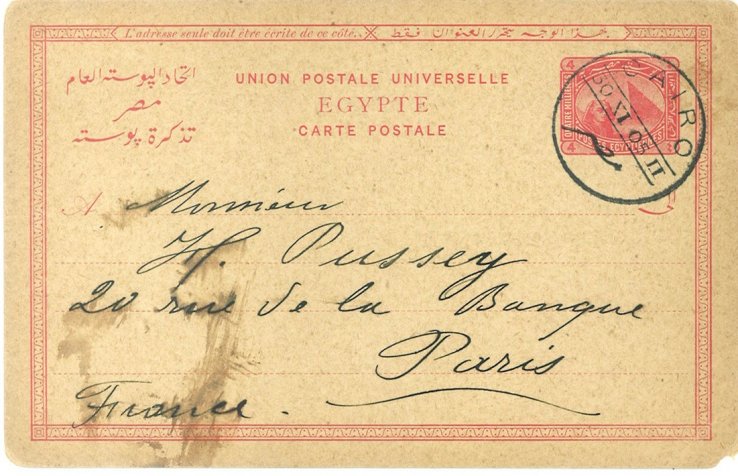 L'adresse seule doit être écrite de ce côté.
بهذا الوجه يتحرر العنوان فقط
اتحاد البوسته العام
مصر
تذكرة بوسته
UNION POSTALE UNIVERSELLE
EGYPTE
CARTE POSTALE
4 4
CAIRO
XI 05 II
A Monsieur
H. Pussey
20 rue de la Banque
Paris
France.